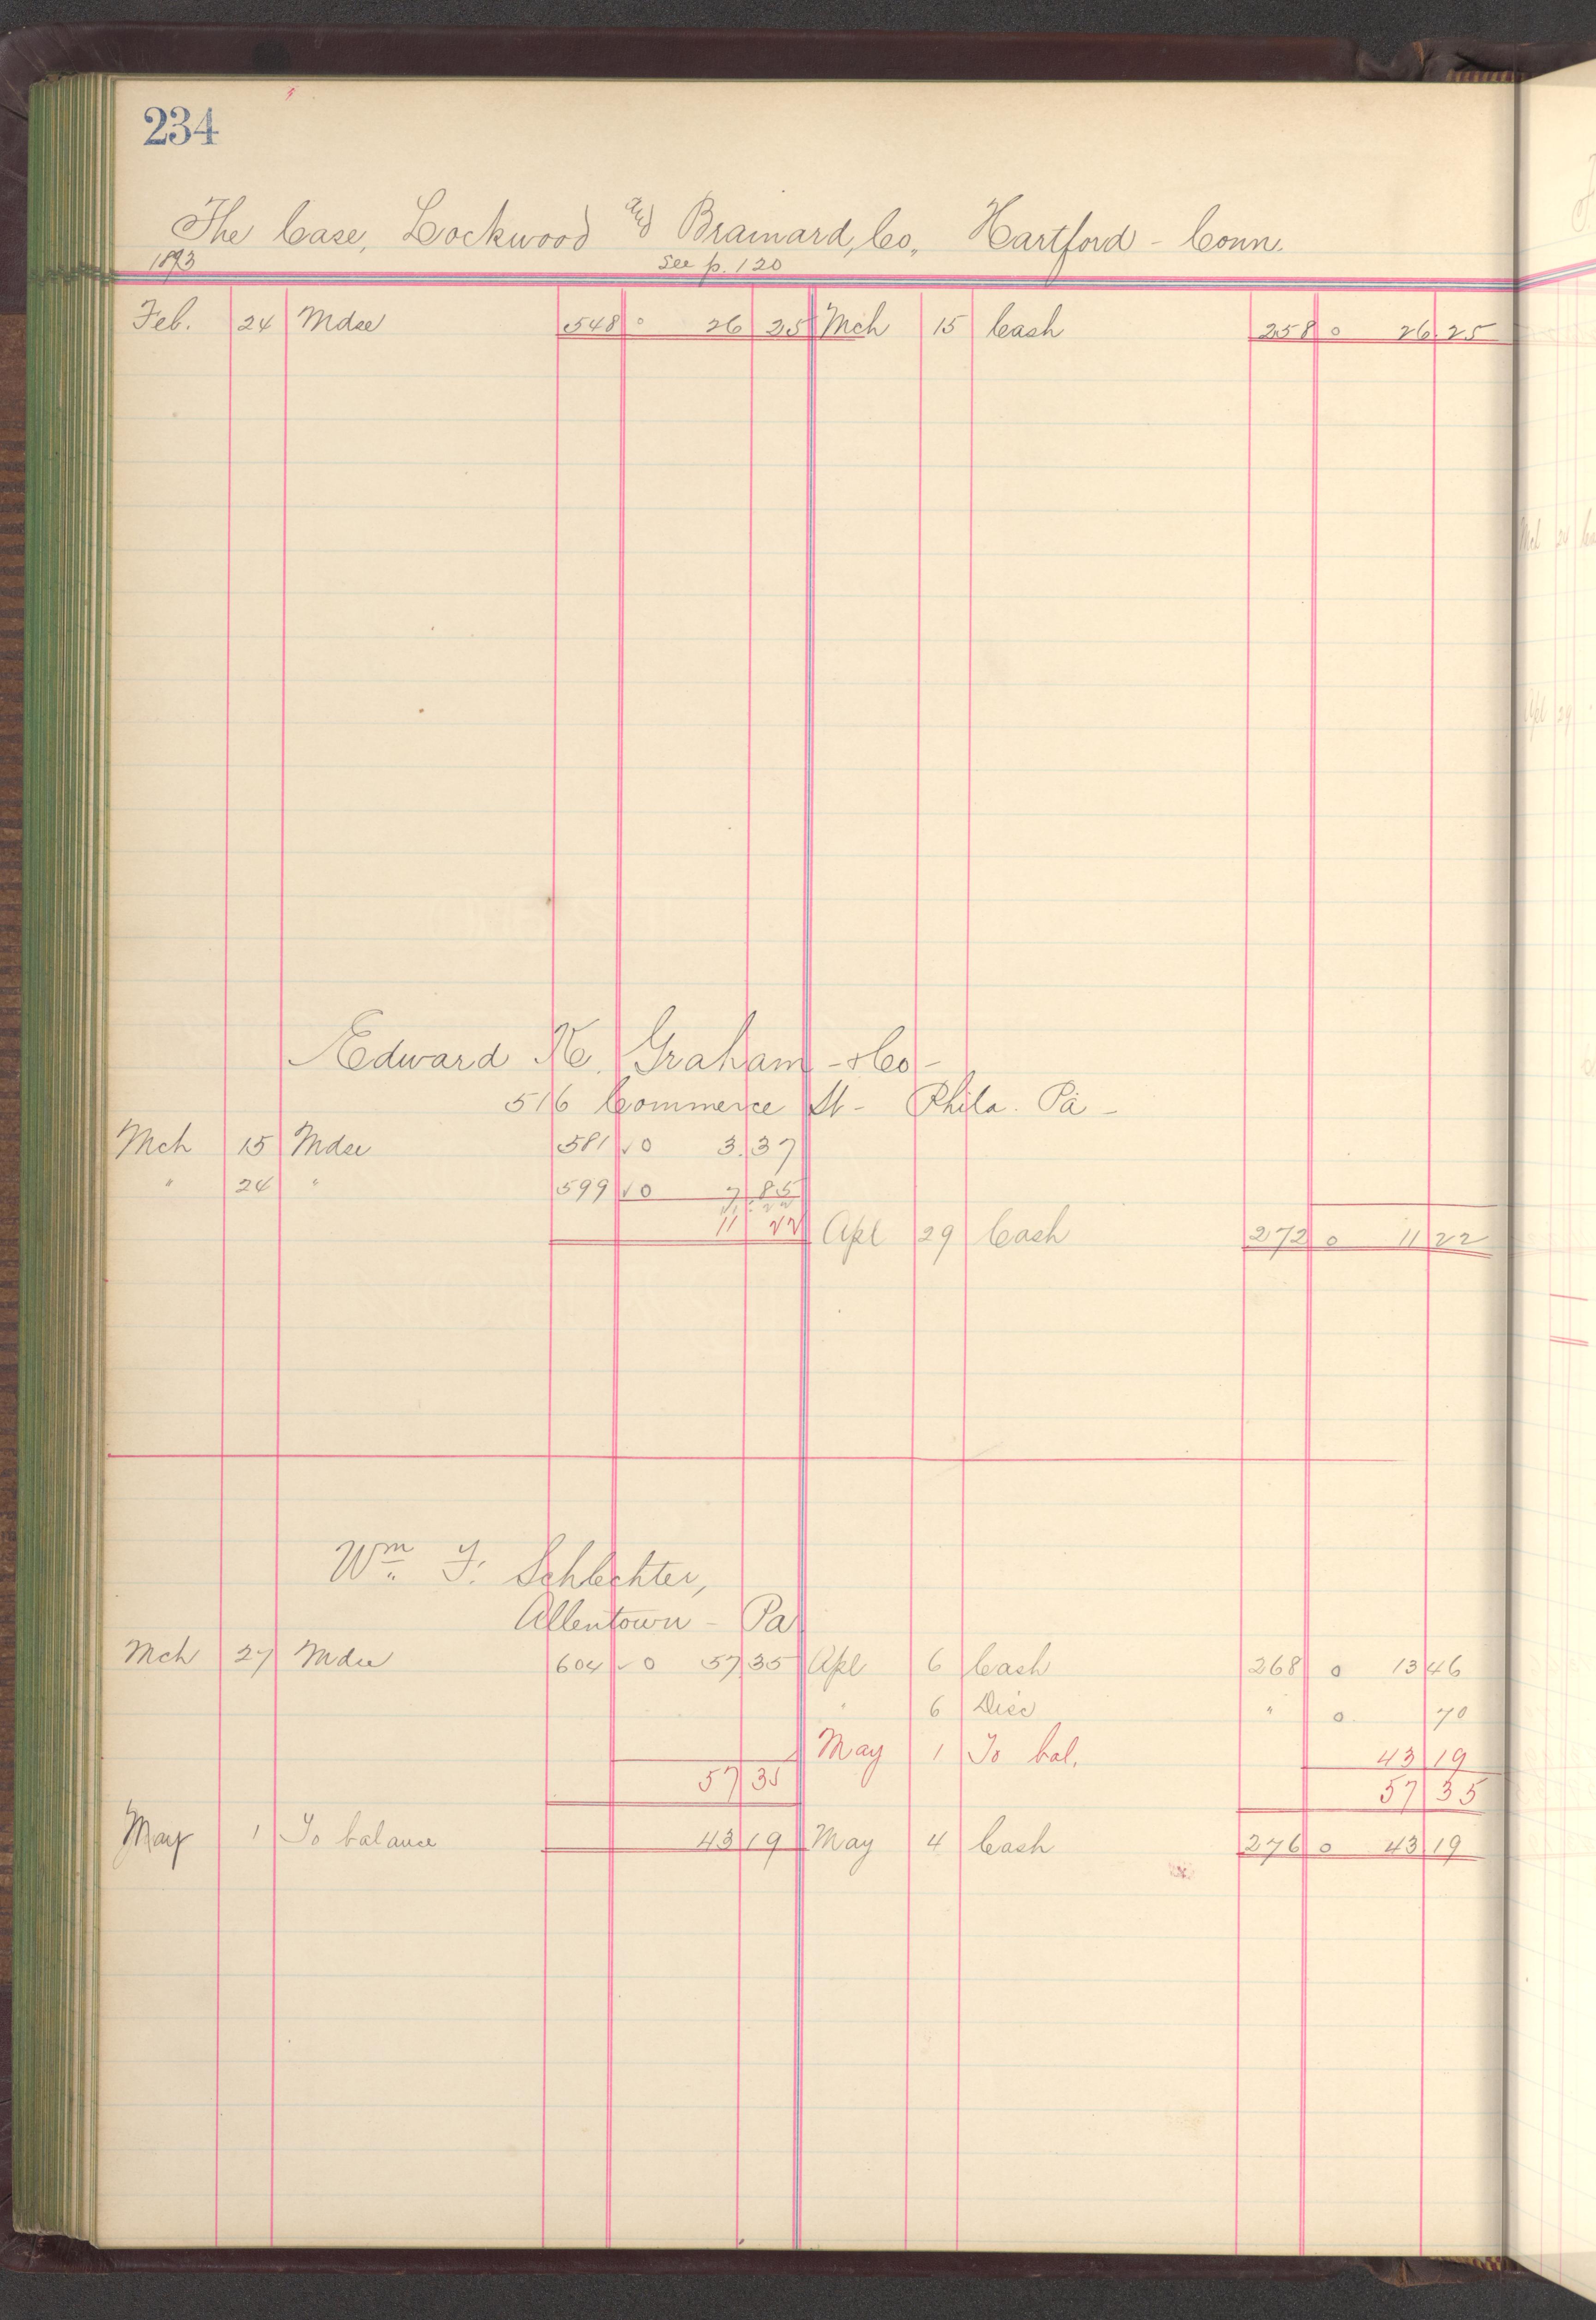 234
The Case, Lockwood and Brainard, Co, Hartford - Conn.
1893 See p. 120
Feb. 24 Mdse 548 0 26 25 Mch 15 Cash 258 0 26 25
Edward Graham - & Co -
516 Commerce St - Phila. Pa -
Mch 15 Mdse 581 0 3 37
" 24 " 599 0 7 85
11 22 Apl 29 Cash 272 0 11 22
Wm F. Schlechter,
Allentown - Pa
Mch 27 Mdse 604 0 57 35 Apl 6 Cash 268 0 13 46
" 6 Disc " 0 70
May 1 To bal. 43 19
57 35 57 35
May 1 To balance 43 19 May 4 Cash 276 0 43 19